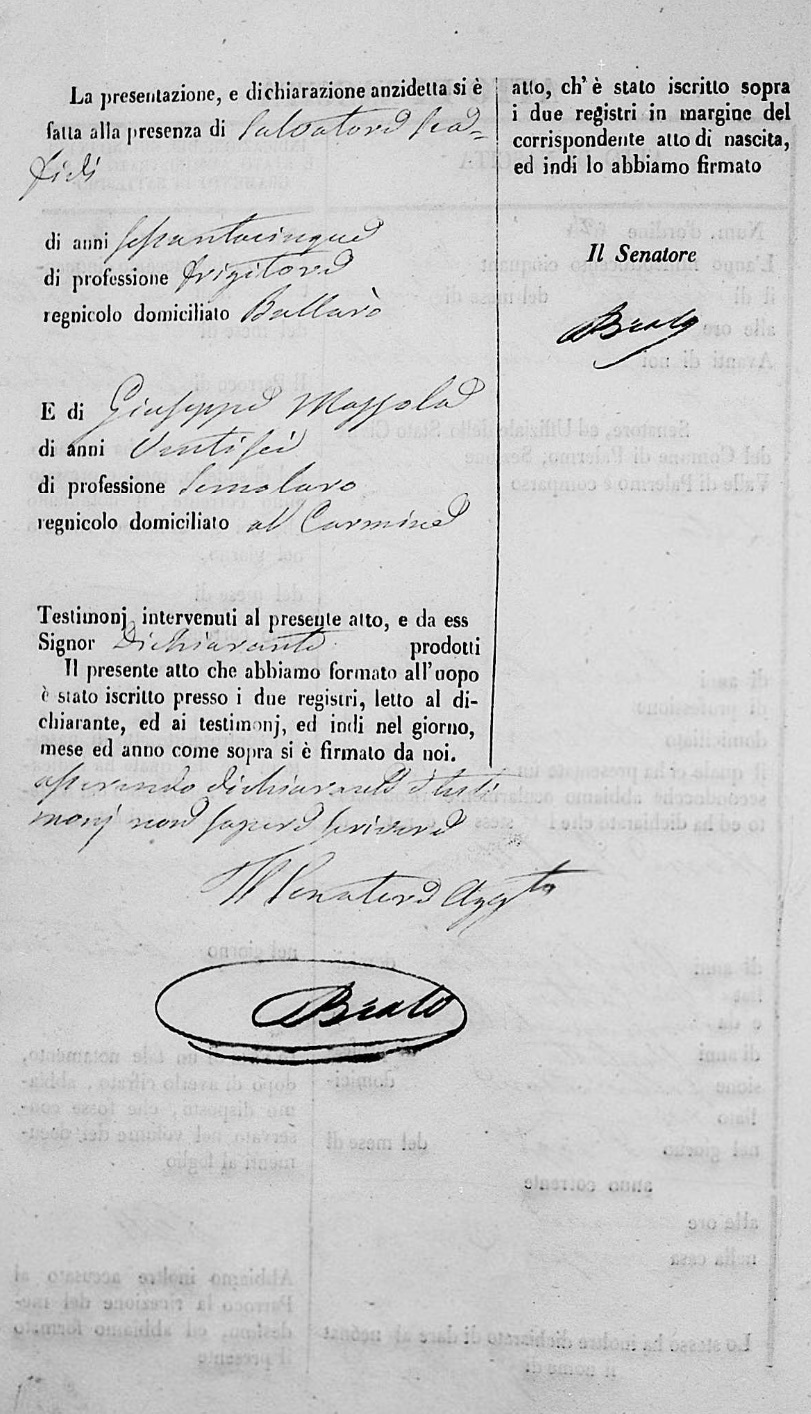 La presentazione, e dichiarazione anzidetta si è
fatta alla presenza di Salvatore
di anni Sessantacinque
di professione frigitore
regnicolo domiciliato Ballarò
E di Giuseppe Mazzola
di anni Ventisei
di professione Semolaro
regnicolo domiciliato al Carmine
Testimonj intervenuti al presente atto, e da ess
Signor Dichiarante prodotti
Il presente atto che abbiamo formato all'uopo
è stato iscritto presso i due registri, letto al di-
chiarante, ed ai testimonj, ed indi nel giorno,
mese ed anno come sopra si è firmato da noi.
asserendo dichiarante e testi
monj non sapere scrivere
Il Senatore Agg.to
Beato
atto, ch'è stato iscritto sopra
i due registri in margine del
corrispondente atto di nascita,
ed indi lo abbiamo firmato
Il Senatore
Beato